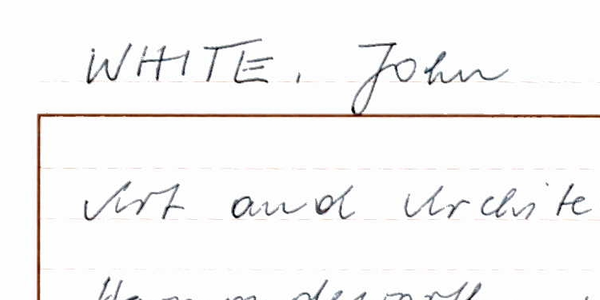 WHITE, John
Art and Archite